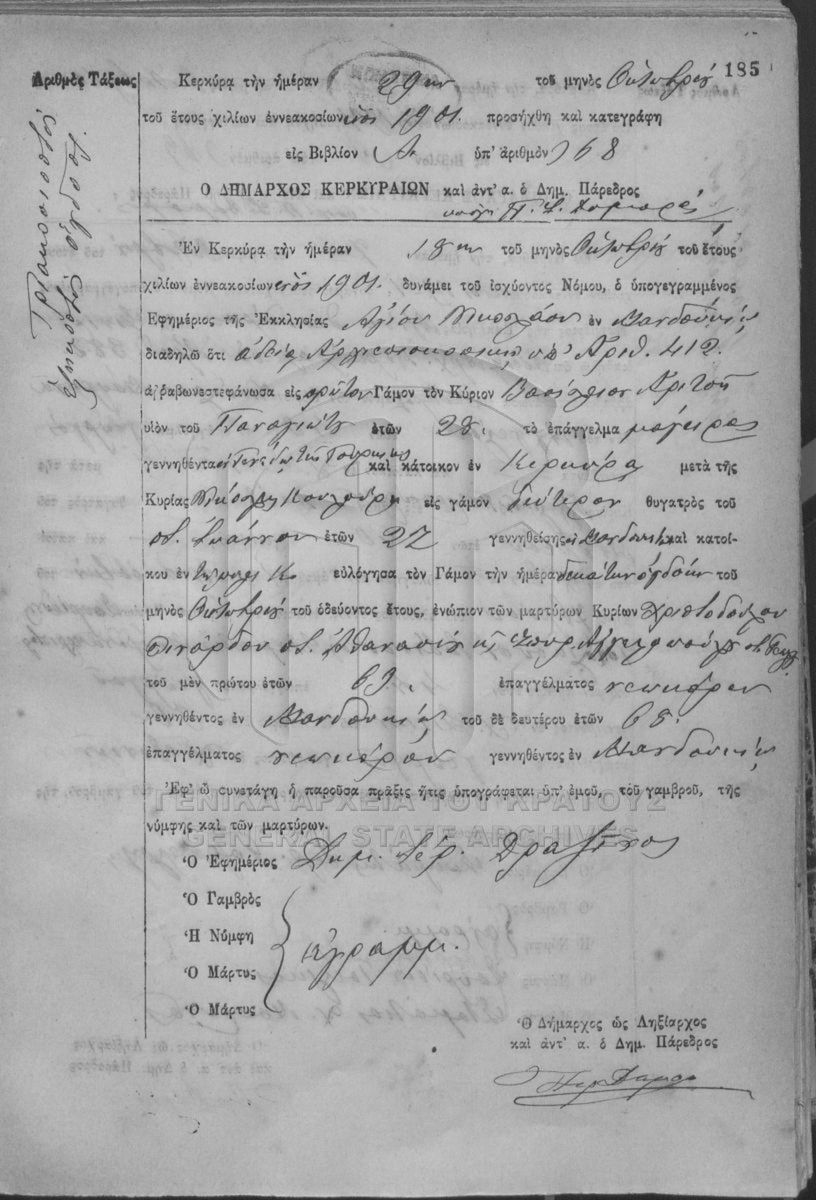 185
Ἀριθμὸς Τάξεως
Τριακοσιοστὸς
ἑξηκοστὸς ὄγδοος
Κερκύρᾳ τὴν ἡμέραν 29ην τοῦ μηνὸς Ὀκτωβρίου
τοῦ ἔτους χιλίων ἐννεακοσίων ἑνὸς 1901. προσήχθη καὶ κατεγράφη
εἰς Βιβλίον Α. ὑπ' ἀριθμὸν 368
Ο ΔΗΜΑΡΧΟΣ ΚΕΡΚΥΡΑΙΩΝ καὶ ἀντ' α. ὁ Δημ. Πάρεδρος
Ἐν Κερκύρᾳ τὴν ἡμέραν 18ην τοῦ μηνὸς Ὀκτωβρίου τοῦ ἔτους
χιλίων ἐννεακοσίων ἑνὸς 1901. δυνάμει τοῦ ἰσχύοντος Νόμου, ὁ ὑπογεγραμμένος
Ἐφημέριος τῆς Ἐκκλησίας Ἁγίου Νικολάου ἐν Μανδουκίῳ
διαδηλῶ ὅτι ἀδείᾳ Ἀρχιεπισκοπικῇ ὑπ' Ἀριθ. 412.
ἀῤῥαβωνεστεφάνωσα εἰς πρῶτον Γάμον τὸν Κύριον Βασίλειον
υἱὸν τοῦ Παναγιώτου ἐτῶν 28. τὸ ἐπάγγελμα μάγειρας
γεννηθέντα ἐν τῆς Τουρκίας καὶ κάτοικον ἐν Κερκύρᾳ μετὰ τῆς
Κυρίας εἰς γάμον δεύτερον θυγατρὸς τοῦ
ποτ. Ἰωάννου ἐτῶν 27 γεννηθείσης ἐν Μανδουκίῳ καὶ κατοί-
κου ἐν εὐλόγησα τὸν Γάμον τὴν ἡμέραν δεκάτην ὀγδόην τοῦ
μηνὸς Ὀκτωβρίου τοῦ ὁδεύοντος ἔτους, ἐνώπιον τῶν μαρτύρων Κυρίων Χριστοδούλου
ποτ. Ἀθανασίου καὶ Σπυρ. Ἀγγελοπούλου
τοῦ μὲν πρώτου ἐτῶν 69. ἐπαγγέλματος νεωκόρου
γεννηθέντος ἐν Μανδουκίῳ τοῦ δὲ δευτέρου ἐτῶν 68.
ἐπαγγέλματος νεωκόρου γεννηθέντος ἐν Μανδουκίῳ
Ἐφ' ᾧ συνετάγη ἡ παροῦσα πρᾶξις ἥτις ὑπογράφεται ὑπ' ἐμοῦ, τοῦ γαμβροῦ, τῆς
νύμφης καὶ τῶν μαρτύρων.
ΓΕΝΙΚΑ ΑΡΧΕΙΑ ΤΟΥ ΚΡΑΤΟΥΣ
GENERAL STATE ARCHIVES
Ὁ Ἐφημέριος Δημ. Ἱερ.
Ὁ Γαμβρὸς
Ἡ Νύμφη
ἀγράμμ.
Ὁ Μάρτυς
Ὁ Μάρτυς
Ὁ Δήμαρχος ὡς Ληξίαρχος
καὶ ἀντ' α. ὁ Δημ. Πάρεδρος